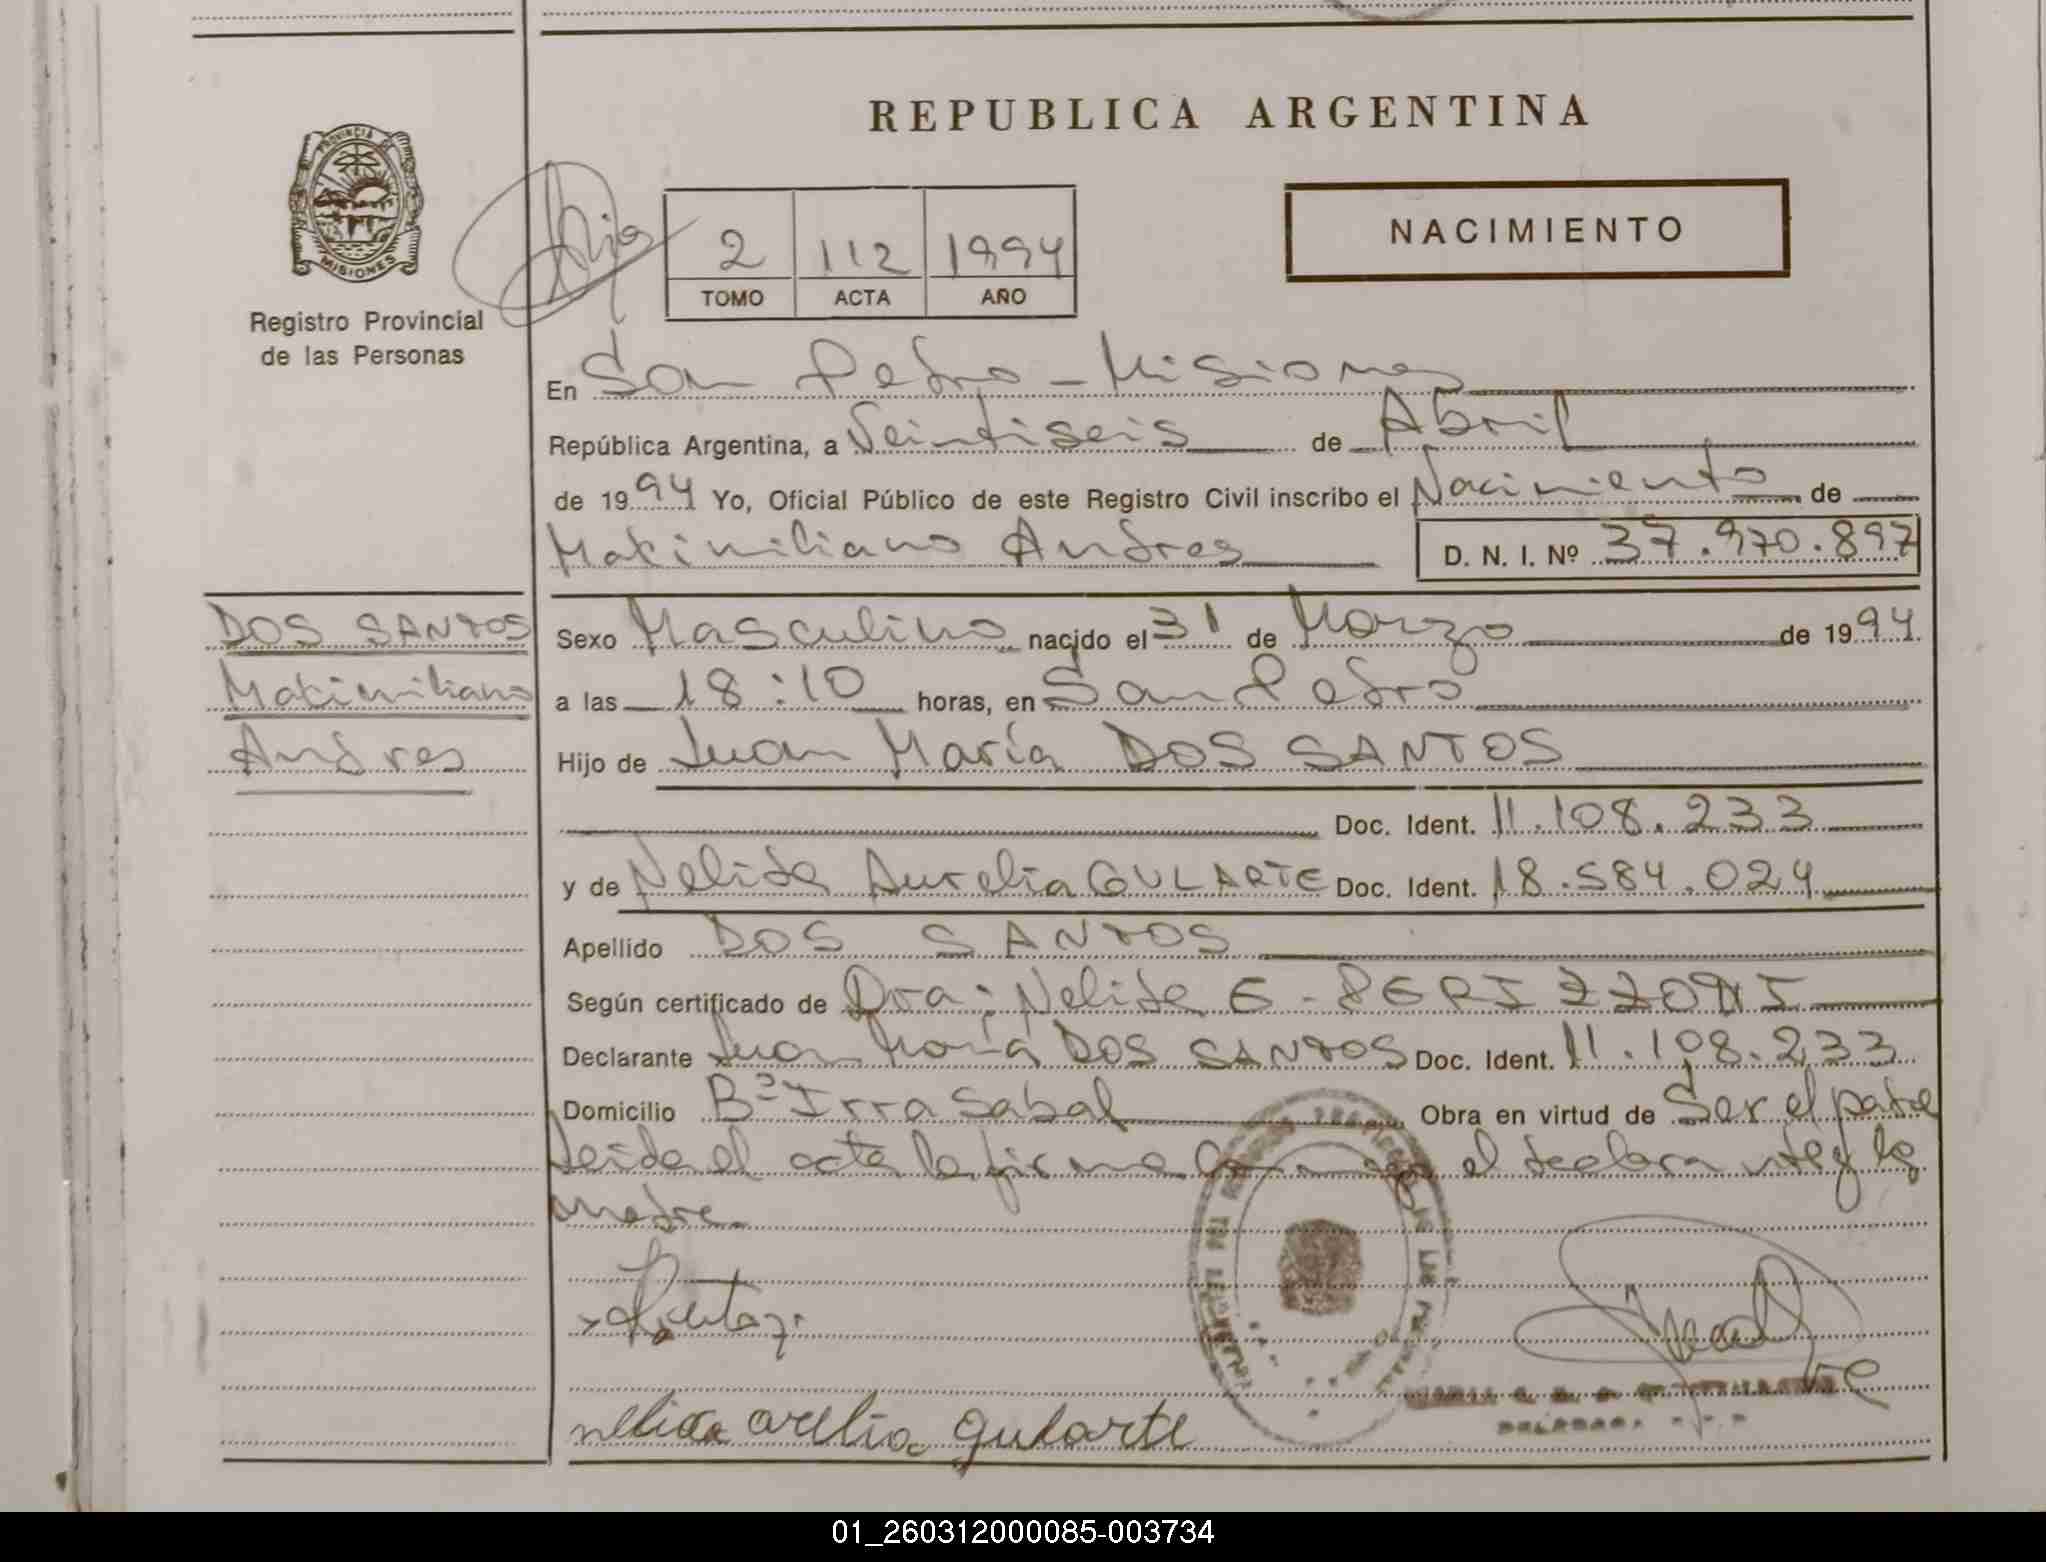 REPUBLICA ARGENTINA
PROVINCIA DE
MISIONES
Registro Provincial
de las Personas
2 112 1994
TOMO ACTA AÑO
NACIMIENTO
En San Pedro - Misiones
República Argentina, a Veintiseis de Abril
de 1994 Yo, Oficial Público de este Registro Civil inscribo el Nacimiento de
Maximiliano Andres D. N. I. Nº 37.970.897
DOS SANTOS
Maximiliano
Andres
Sexo Masculino nacido el 31 de Marzo de 1994
a las 18:10 horas, en San Pedro
Hijo de Juan María DOS SANTOS
Doc. Ident. 11.108.233
y de Nelida Aurelia GULARTE Doc. Ident. 18.584.024
Apellido DOS SANTOS
Según certificado de Dra: Nelida E. PERIZZONI
Declarante Juan María DOS SANTOS Doc. Ident. 11.108.233
Domicilio Bº Irrasabal Obra en virtud de Ser el padre
Leida el acta la firma conmigo el declarante y la
madre.
nelida arelia gularte
01_260312000085-003734